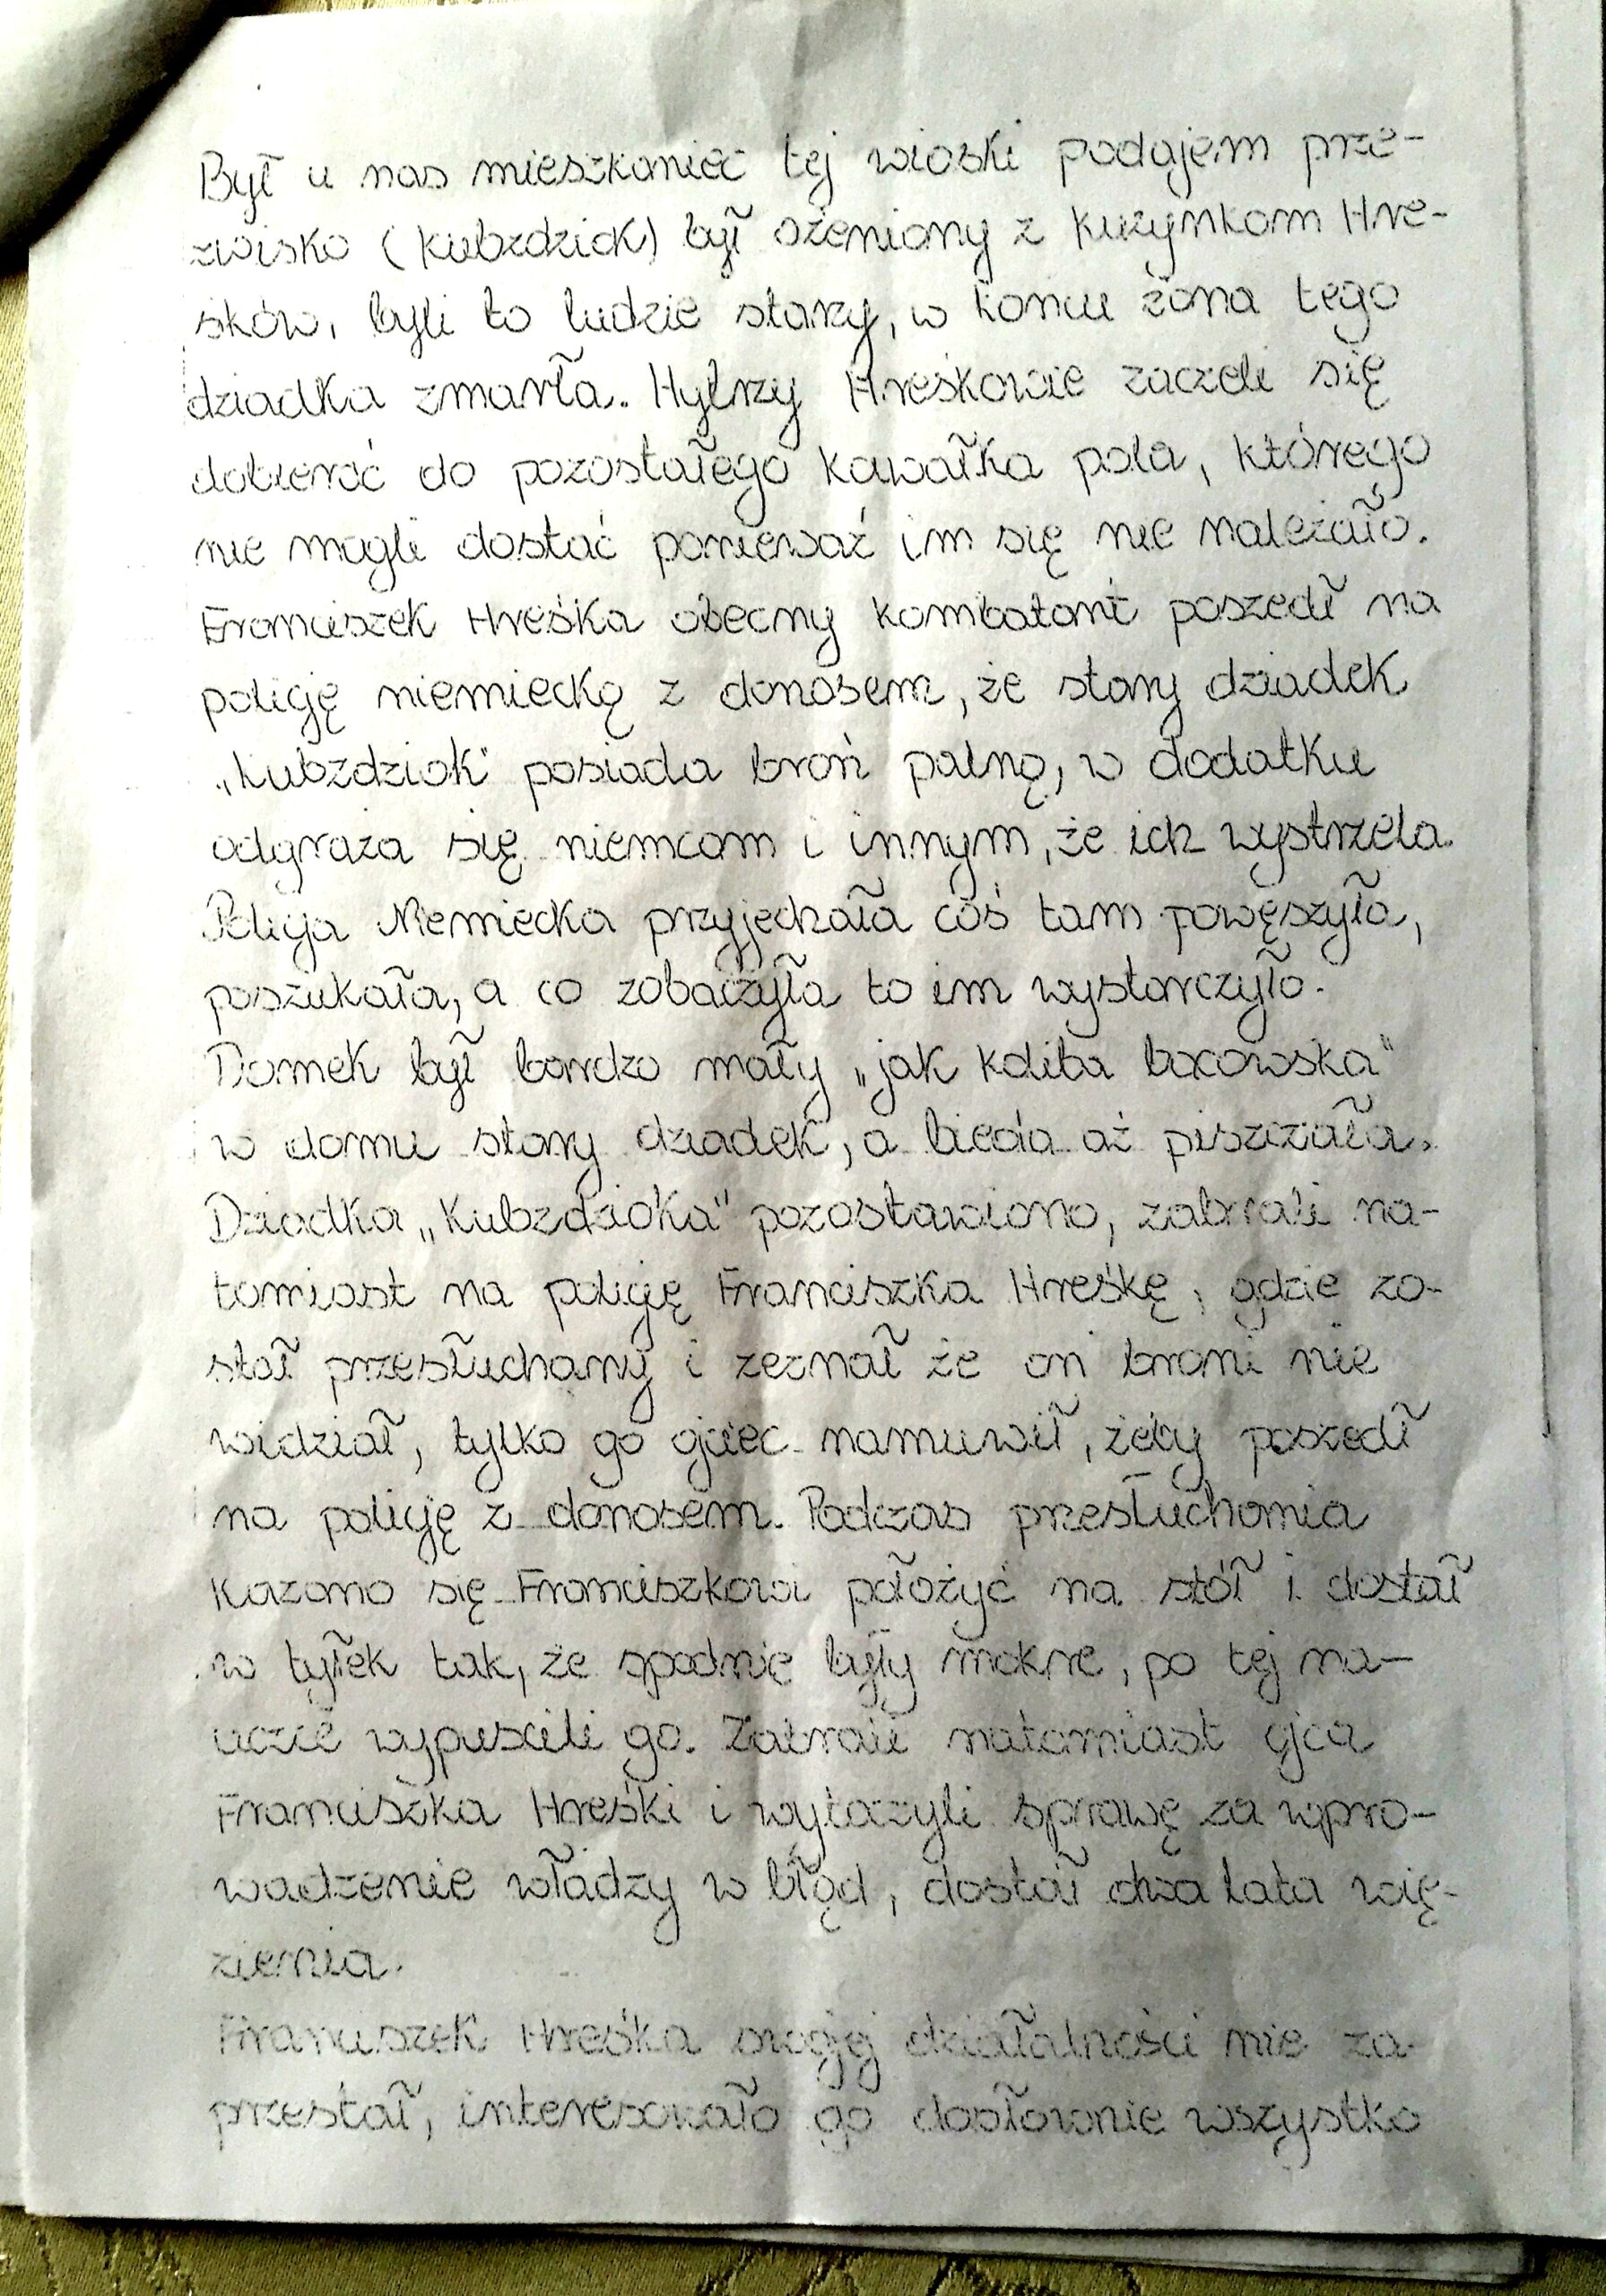 Był u nas mieszkaniec tej wioski podajem prze-
zwisko (Kubzdziok) był ożeniony z kuzynkom Hre-
śków, byli to ludzie starzy, w końcu żona tego
dziadka zmarła. Hytrzy Hreśkowie zaczeli się
dobierać do pozostałego kawałka pola, którego
nie mogli dostać ponieważ im się nie należało.
Franciszek Hreśka obecny kombatant poszedł na
policję niemiecką z donosem, że stary dziadek
„Kubzdziok" posiada broń palną, w dodatku
odgraża się niemcom i innym, że ich wystrzela.
Policja Niemiecka przyjechała coś tam powęszyła,
poszukała, a co zobaczyła to im wystarczyło.
Domek był bardzo mały „jak koliba bacowska"
w domu stary dziadek, a bieda aż piszczała.
Dziadka „Kubzdzioka" pozostawiono, zabrali na-
tomiast na policję Franciszka Hreśkę, gdzie zo-
stał przesłuchany i zeznał że on broni nie
widział, tylko go ojciec namuwił, żeby poszedł
na policję z donosem. Podczas przesłuchania
kazano się Franciszkowi położyć na stół i dostał
w tyłek tak, że spodnie były mokre, po tej na-
uczce wypuścili go. Zabrali natomiast ojca
Franciszka Hreśki i wytoczyli sprawę za wpro-
wadzenie władzy w błąd, dostał dwa lata wię-
zienia.
Franciszek Hreśka swojej działalności nie za-
przestał, interesowało go dosłownie wszystko